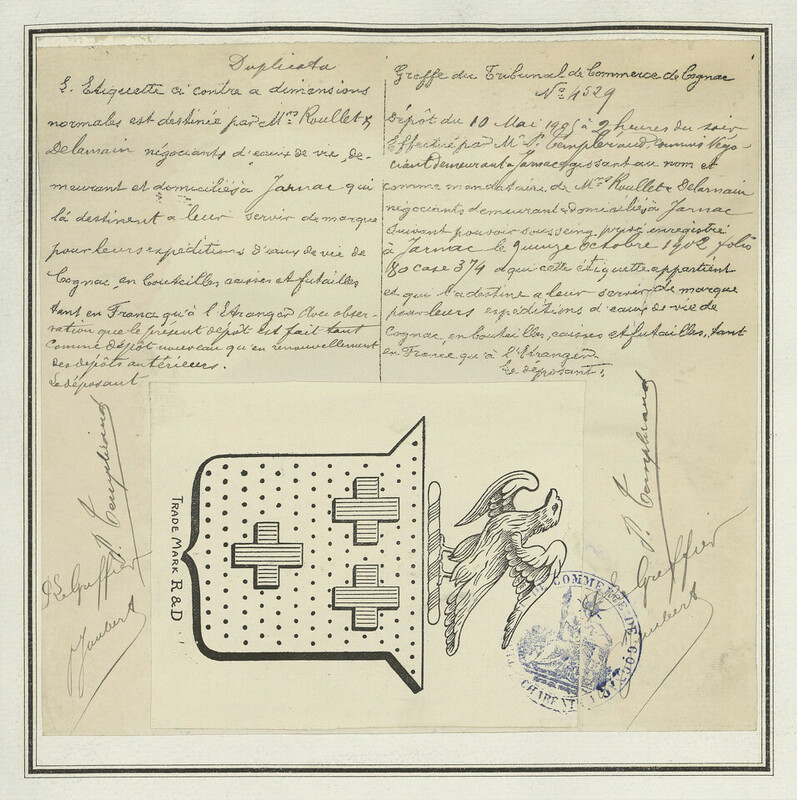 Duplicata
L'Etiquette ci contre a dimensions
normales est destinée par Mrs Roullet &
Delamain négociants d'eaux de vie, de-
meurant et domiciliés à Jarnac qui
la destinent a leur servir de marque
pour leurs expéditions d'eaux de vie de
Cognac, en bouteilles caisses et futailles
tant en France qu'à l'Etranger avec obser-
vation que le présent dépôt est fait tant
comme dépôt nouveau qu'en renouvellement
des dépôts antérieurs.
Le déposant
Greffe du Tribunal de Commerce de Cognac
No 4529
Dépôt du 10 Mai à 2 heures du soir
Effectué par Mr commis Négo-
ciant demeurant à Jarnac agissant au nom et
comme mandataire de Mrs Roullet & Delamain
négociants demeurant & domiciliés à Jarnac
suivant pouvoir sous seing privé enregistré
à Jarnac le quinze Octobre 1902 folio
180 case 374 à qui cette étiquette appartient
et qui la destine a leur servir de marque
pour leurs expéditions d'eaux de vie de
Cognac, en bouteilles, caisses et futailles, tant
en France qu'à l'Etranger.
Le déposant:
Le Greffier
Joubert
TRADE MARK R & D
Greffier
Joubert
COMMERCE DE COGNAC
CHARENTE